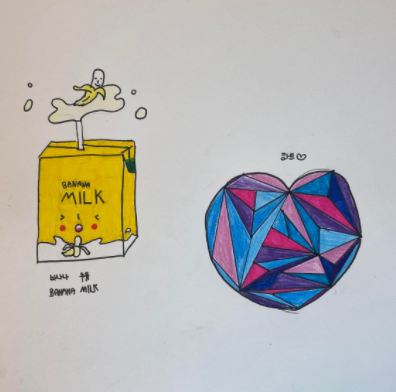 BANANA
MILK
바나나 우유
BANANA MILK